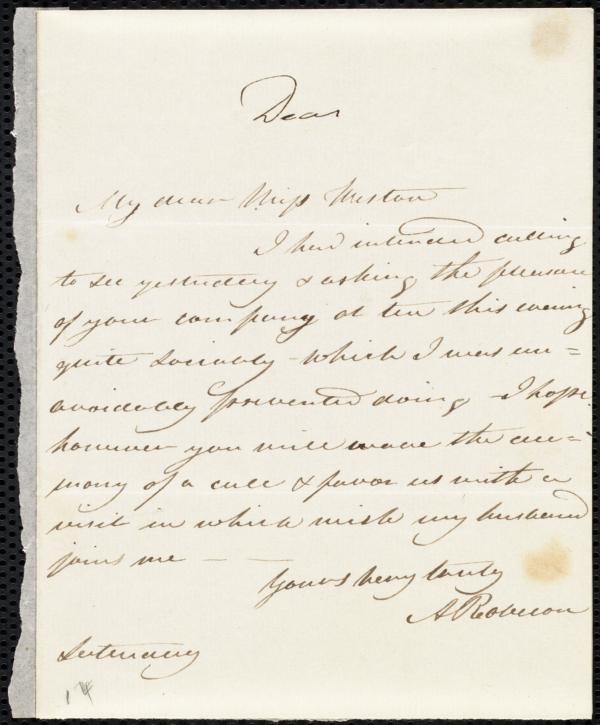 Dear
My dear Miss Weston
I had intended calling
to see yesterday & asking the pleasure
of your company at tea this evening
quite sociably - which I was un=
avoidably prevented doing - I hope
however you will wave the cere=
mony of a call & favor us with a
visit in which wish my husband
joins me - -
Yours very truly
A Robeson
Saturday